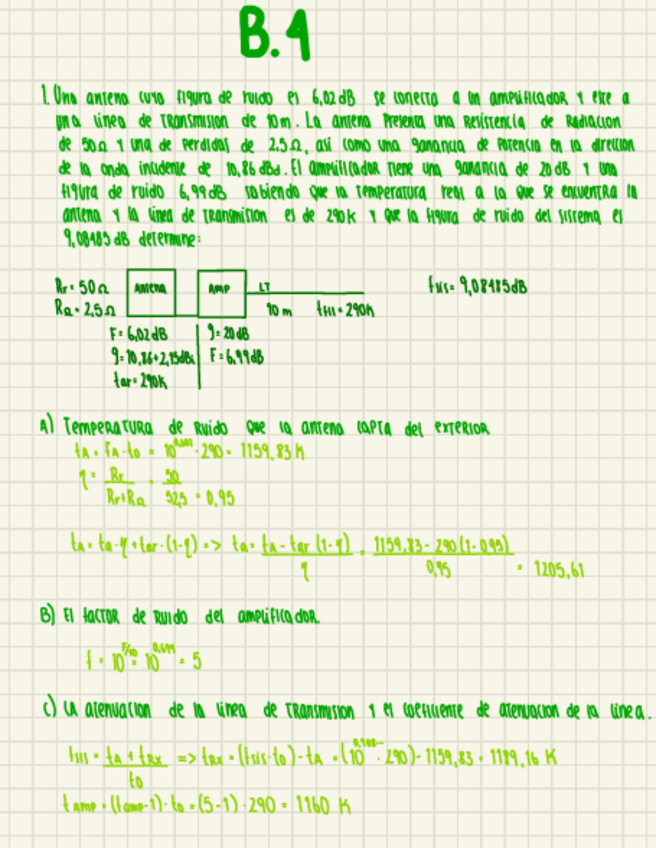 B.1
1. Una antena cuya figura de ruido es 6,02 dB se conecta a un amplificador y este a
una línea de transmision de 10m. La antena presenta una Resistencia de Radiacion
de 50Ω y una de perdidas de 2,5Ω, así como una ganancia de potencia en la direccion
de la onda incidente de 10,86 dBd. El amplificador tiene una ganancia de 20 dB y una
figura de ruido 6,99 dB sabiendo que la temperatura real a la que se encuentra la
antena y la línea de transmition es de 290k y que la figura de ruido del sistema es
9,08485 dB determine:
Rr = 50Ω ANTENA AMP LT fsis = 9,08485dB
RΩ = 2,5Ω 10 m tfis = 290K
F = 6,02 dB g = 20 dB
g = 10,86+2,15dBi F = 6,99 dB
tar = 290K
A) Temperatura de Ruido que la antena capta del exterior
tA = FA·t0 = 10^0,602 · 290 = 1159,83 K
η = Rr / (Rr+RΩ) = 50 / 52,5 = 0,95
tA = ta·η + tar·(1-η) => ta = (tA - tar (1-η)) / η = (1159,83 - 290(1-0,95)) / 0,95 = 1205,61
B) El factor de Ruido del amplificador.
f = 10^F/10 = 10^0,699 = 5
c) LA atenuacion de la línea de Transmision y el coeficiente de atenuacion de la línea.
fsis = (tA + tRx) / t0 => tRx = (fsis·t0) - tA = (10^0,908... · 290) - 1159,83 = 1189,16 K
tamp = (famp-1)·t0 = (5-1)·290 = 1160 K